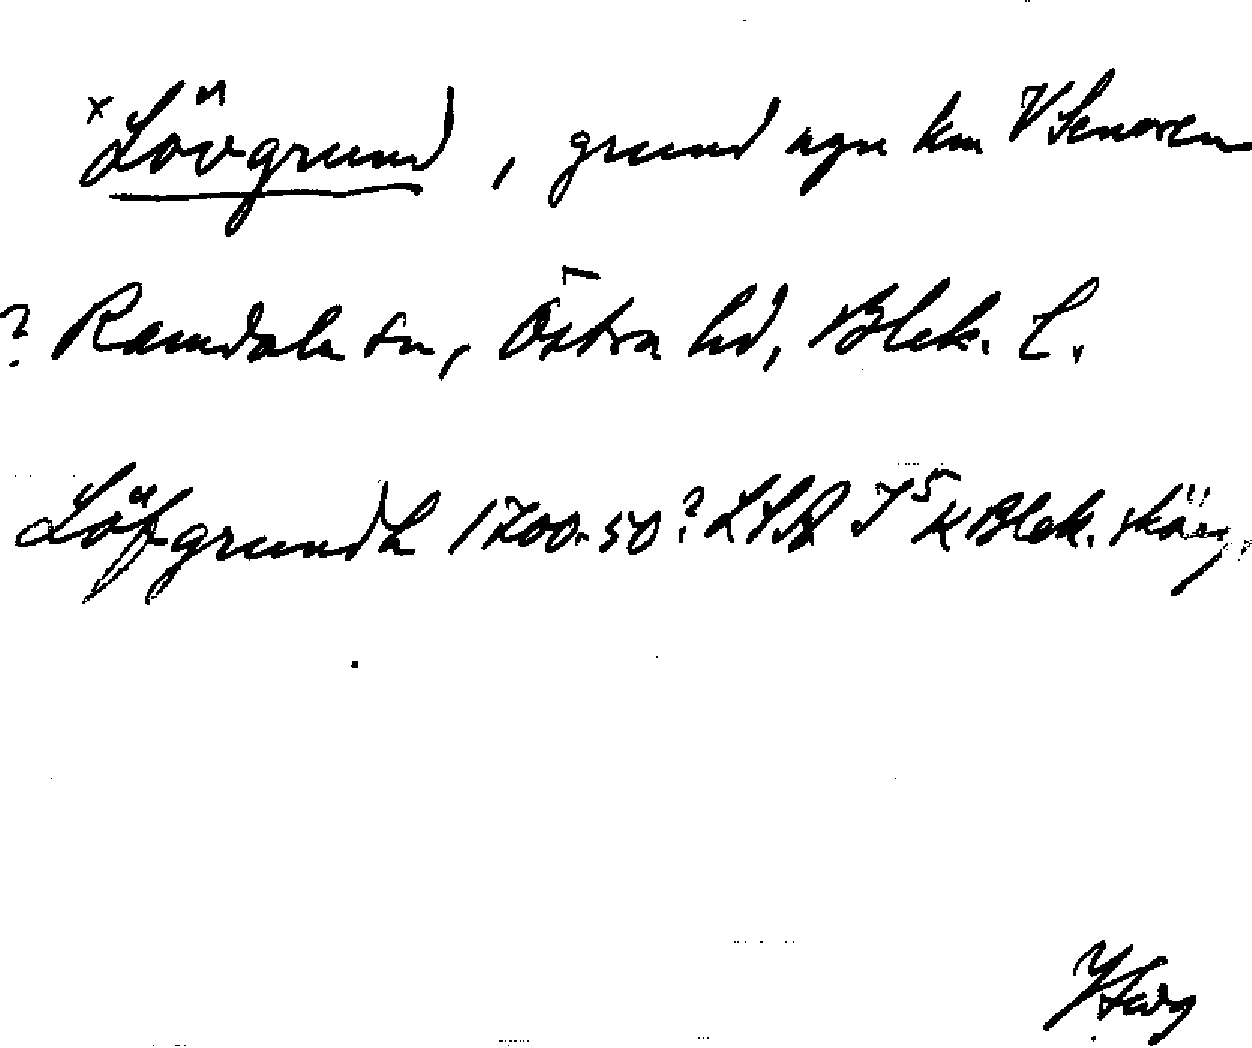 x Lövgrund, grund ngn km V Senoren
? Ramdala sn, Östra hd, Blek. l.
Löfgrundh 1700-50? LSA J 5 K Blek. skärg.